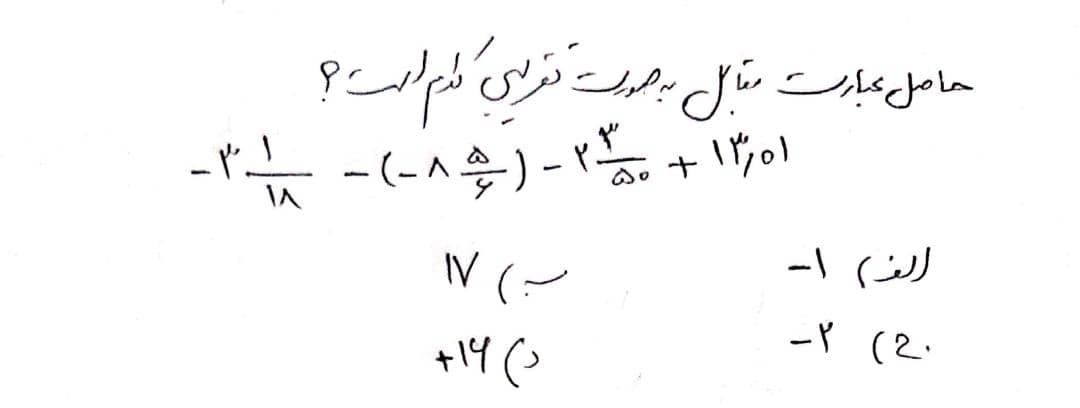 حاصل عبارت مقابل به صورت تقریبی کدام است؟
-۳ ۱/۱۸ - (-۸ ۵/۶) - ۲ ۳/۵۰ + ۱۳٫۰۱
الف) -۱ ب) ۱۷
ج) -۲ د) +۱۶